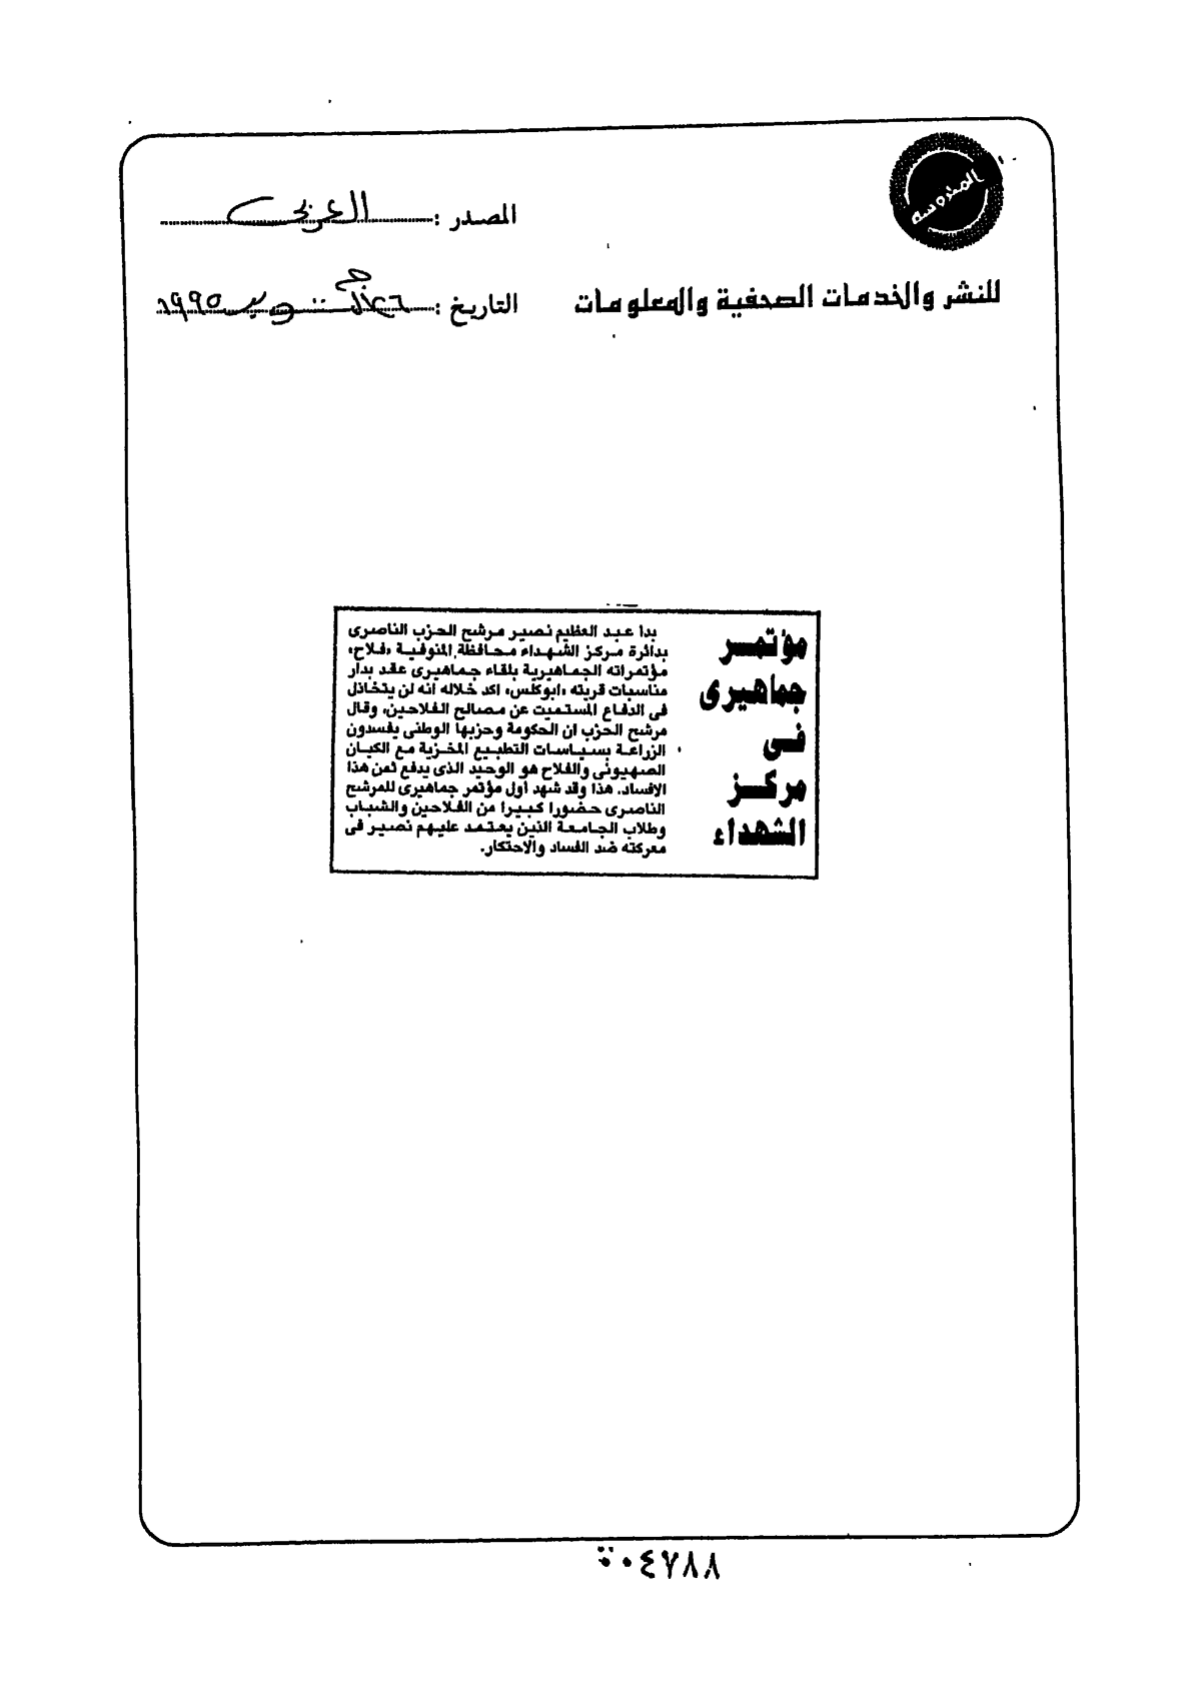 المحروسة
للنشر والخدمات الصحفية والمعلومات
المصدر : العربى
التاريخ : أكتوبر ١٩٩٥
مؤتمر
جماهيرى
فى
مركز
الشهداء
بدا عبد العظيم نصير مرشح الحزب الناصرى
بدائرة مركز الشهداء محافظة المنوفية «فلاح»
مؤتمراته الجماهيرية بلقاء جماهيرى عقد بدار
مناسبات قريته «ابوكلس» اكد خلاله انه لن يتخاذل
فى الدفاع المستميت عن مصالح الفلاحين، وقال
مرشح الحزب ان الحكومة وحزبها الوطنى يفسدون
الزراعة بسياسات التطبيع المخزية مع الكيان
الصهيونى والفلاح هو الوحيد الذى يدفع ثمن هذا
الإفساد. هذا وقد شهد أول مؤتمر جماهيرى للمرشح
الناصرى حضورا كبيرا من الفلاحين والشباب
وطلاب الجامعة الذين يعتمد عليهم نصير فى
معركته ضد الفساد والاحتكار.
٠٤٧٨٨